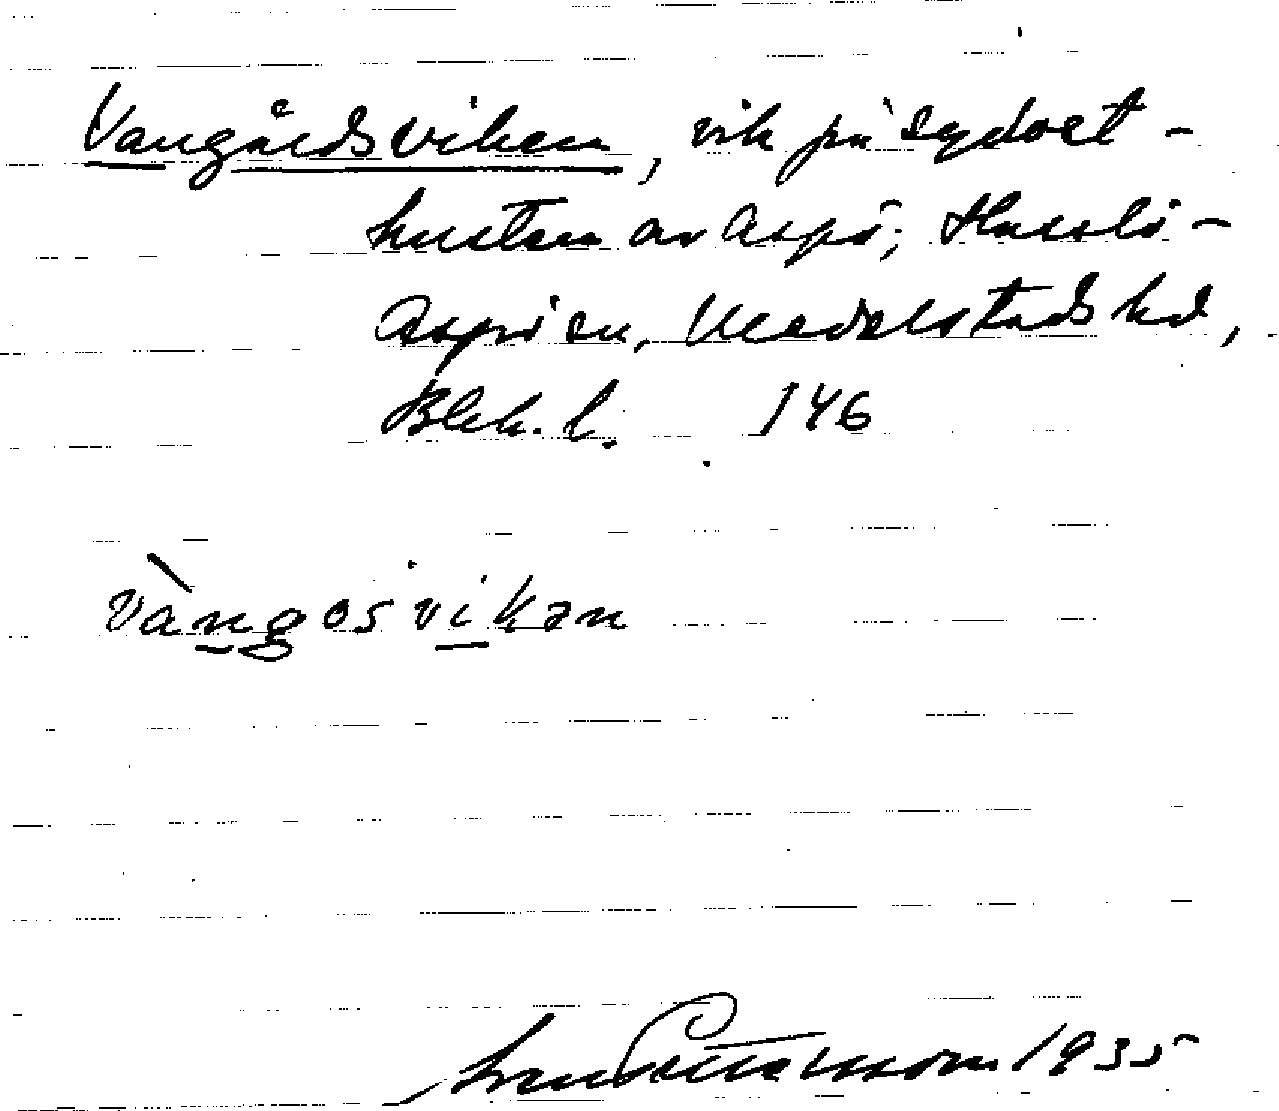 Vangårdsviken, vik på sydost-
kusten av Aspö; Hasslö-
Aspö sn, Medelstads hd,
Blek. l. 146
vàngosvikən
1935